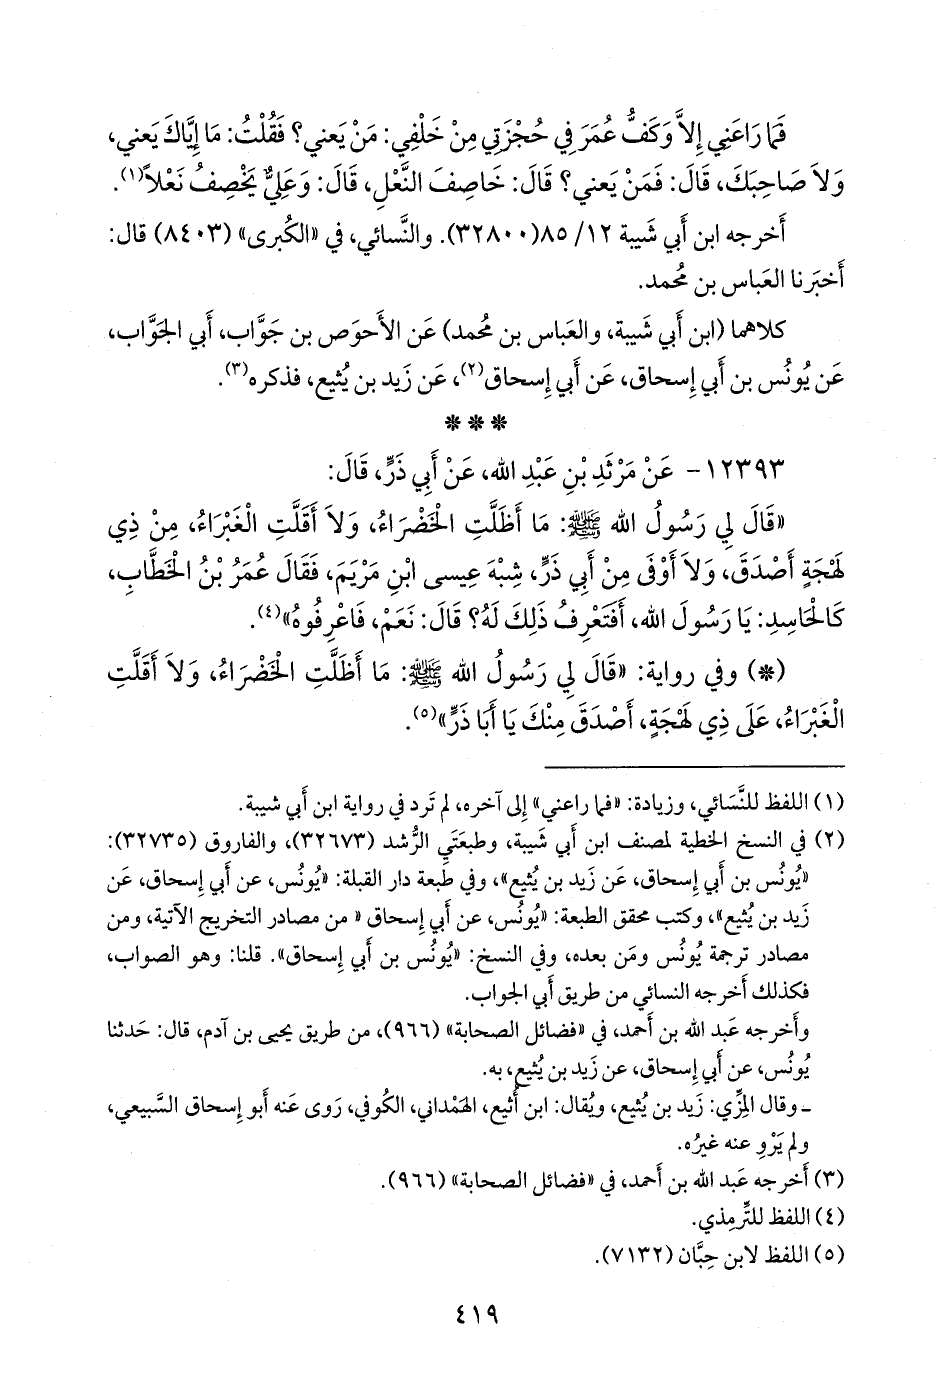 فَمَا رَاعَنِي إِلاَّ وَكَفُّ عُمَرَ فِي حُجْزَتِي مِنْ خَلْفِي: مَنْ يَعني؟ فَقُلْتُ: مَا إِيَّاكَ يَعني،
وَلاَ صَاحِبَكَ، قَالَ: فَمَنْ يَعني؟ قَالَ: خَاصِفَ النَّعْلِ، قَالَ: وَعَلِيٌّ يَخْصِفُ نَعْلاً(١).
أخرجه ابن أبي شَيبة ١٢/ ٨٥(٣٢٨٠٠). والنَّسائي، في «الكُبرى» (٨٤٠٣) قال:
أخبَرنا العَباس بن مُحمد.
كلاهما (ابن أَبي شَيبة، والعَباس بن مُحمد) عَن الأَحوَص بن جَوَّاب، أَبي الجَوَّاب،
عَن يُونُس بن أَبي إِسحاق، عَن أَبي إِسحاق(٢)، عَن زَيد بن يُثيع، فذكره(٣).
* * *
١٢٣٩٣- عَنْ مَرْثَدِ بْنِ عَبْدِ الله، عَنْ أَبِي ذَرٍّ، قَالَ:
«قَالَ لِي رَسُولُ الله ﷺ: مَا أَظَلَّتِ الْخَضْرَاءُ، وَلاَ أَقَلَّتِ الْغَبْرَاءُ، مِنْ ذِي
لَهْجَةٍ أَصْدَقَ، وَلاَ أَوْفَى مِنْ أَبِي ذَرٍّ، شِبْهَ عِيسى ابنِ مَرْيَمَ، فَقَالَ عُمَرُ بْنُ الْخَطَّابِ،
كَالْحَاسِدِ: يَا رَسُولَ الله، أَفَتَعْرِفُ ذَلِكَ لَهُ؟ قَالَ: نَعَمْ، فَاعْرِفُوهُ»(٤).
(*) وفي رواية: «قَالَ لِي رَسُولُ الله ﷺ: مَا أَظَلَّتِ الْخَضْرَاءُ، وَلاَ أَقَلَّتِ
الْغَبْرَاءُ، عَلَى ذِي لَهْجَةٍ، أَصْدَقَ مِنْكَ يَا أَبَا ذَرٍّ»(٥).
(١) اللفظ للنَّسَائي، وزيادة: «فما راعني» إلى آخره، لم تَرد في رواية ابن أبي شيبة.
(٢) في النسخ الخطية لمصنف ابن أبي شَيبة، وطبعتَي الرُّشد (٣٢٦٧٣)، والفاروق (٣٢٧٣٥):
«يُونُس بن أَبي إِسحاق، عَن زَيد بن يُثيع»، وفي طَبعة دار القبلة: «يُونُس، عن أَبي إِسحاق، عَن
زَيد بن يُثيع»، وكتب محقق الطبعة: «يُونُس، عن أَبي إِسحاق « من مصادر التخريج الآتية، ومن
مصادر ترجمة يُونُس ومَن بعده، وفي النسخ: «يُونُس بن أَبي إِسحاق». قلنا: وهو الصواب،
فكذلك أخرجه النسائي من طريق أبي الجواب.
وأخرجه عَبد الله بن أَحمد، في «فضائل الصحابة» (٩٦٦)، من طريق يحيى بن آدم، قال: حَدثنا
يُونُس، عن أَبي إِسحاق، عن زَيد بن يُثيع، به.
ـ وقال المِزِّي: زَيد بن يُثيع، ويُقال: ابن أُثيع، الهَمْداني، الكُوفي، رَوى عَنه أبو إِسحاق السَّبيعي،
ولم يَرْوِ عنه غيرُه.
(٣) أَخرجه عَبد الله بن أَحمد، في «فضائل الصحابة» (٩٦٦).
(٤) اللفظ للتِّرمِذي.
(٥) اللفظ لابن حِبَّان (٧١٣٢).
٤١٩